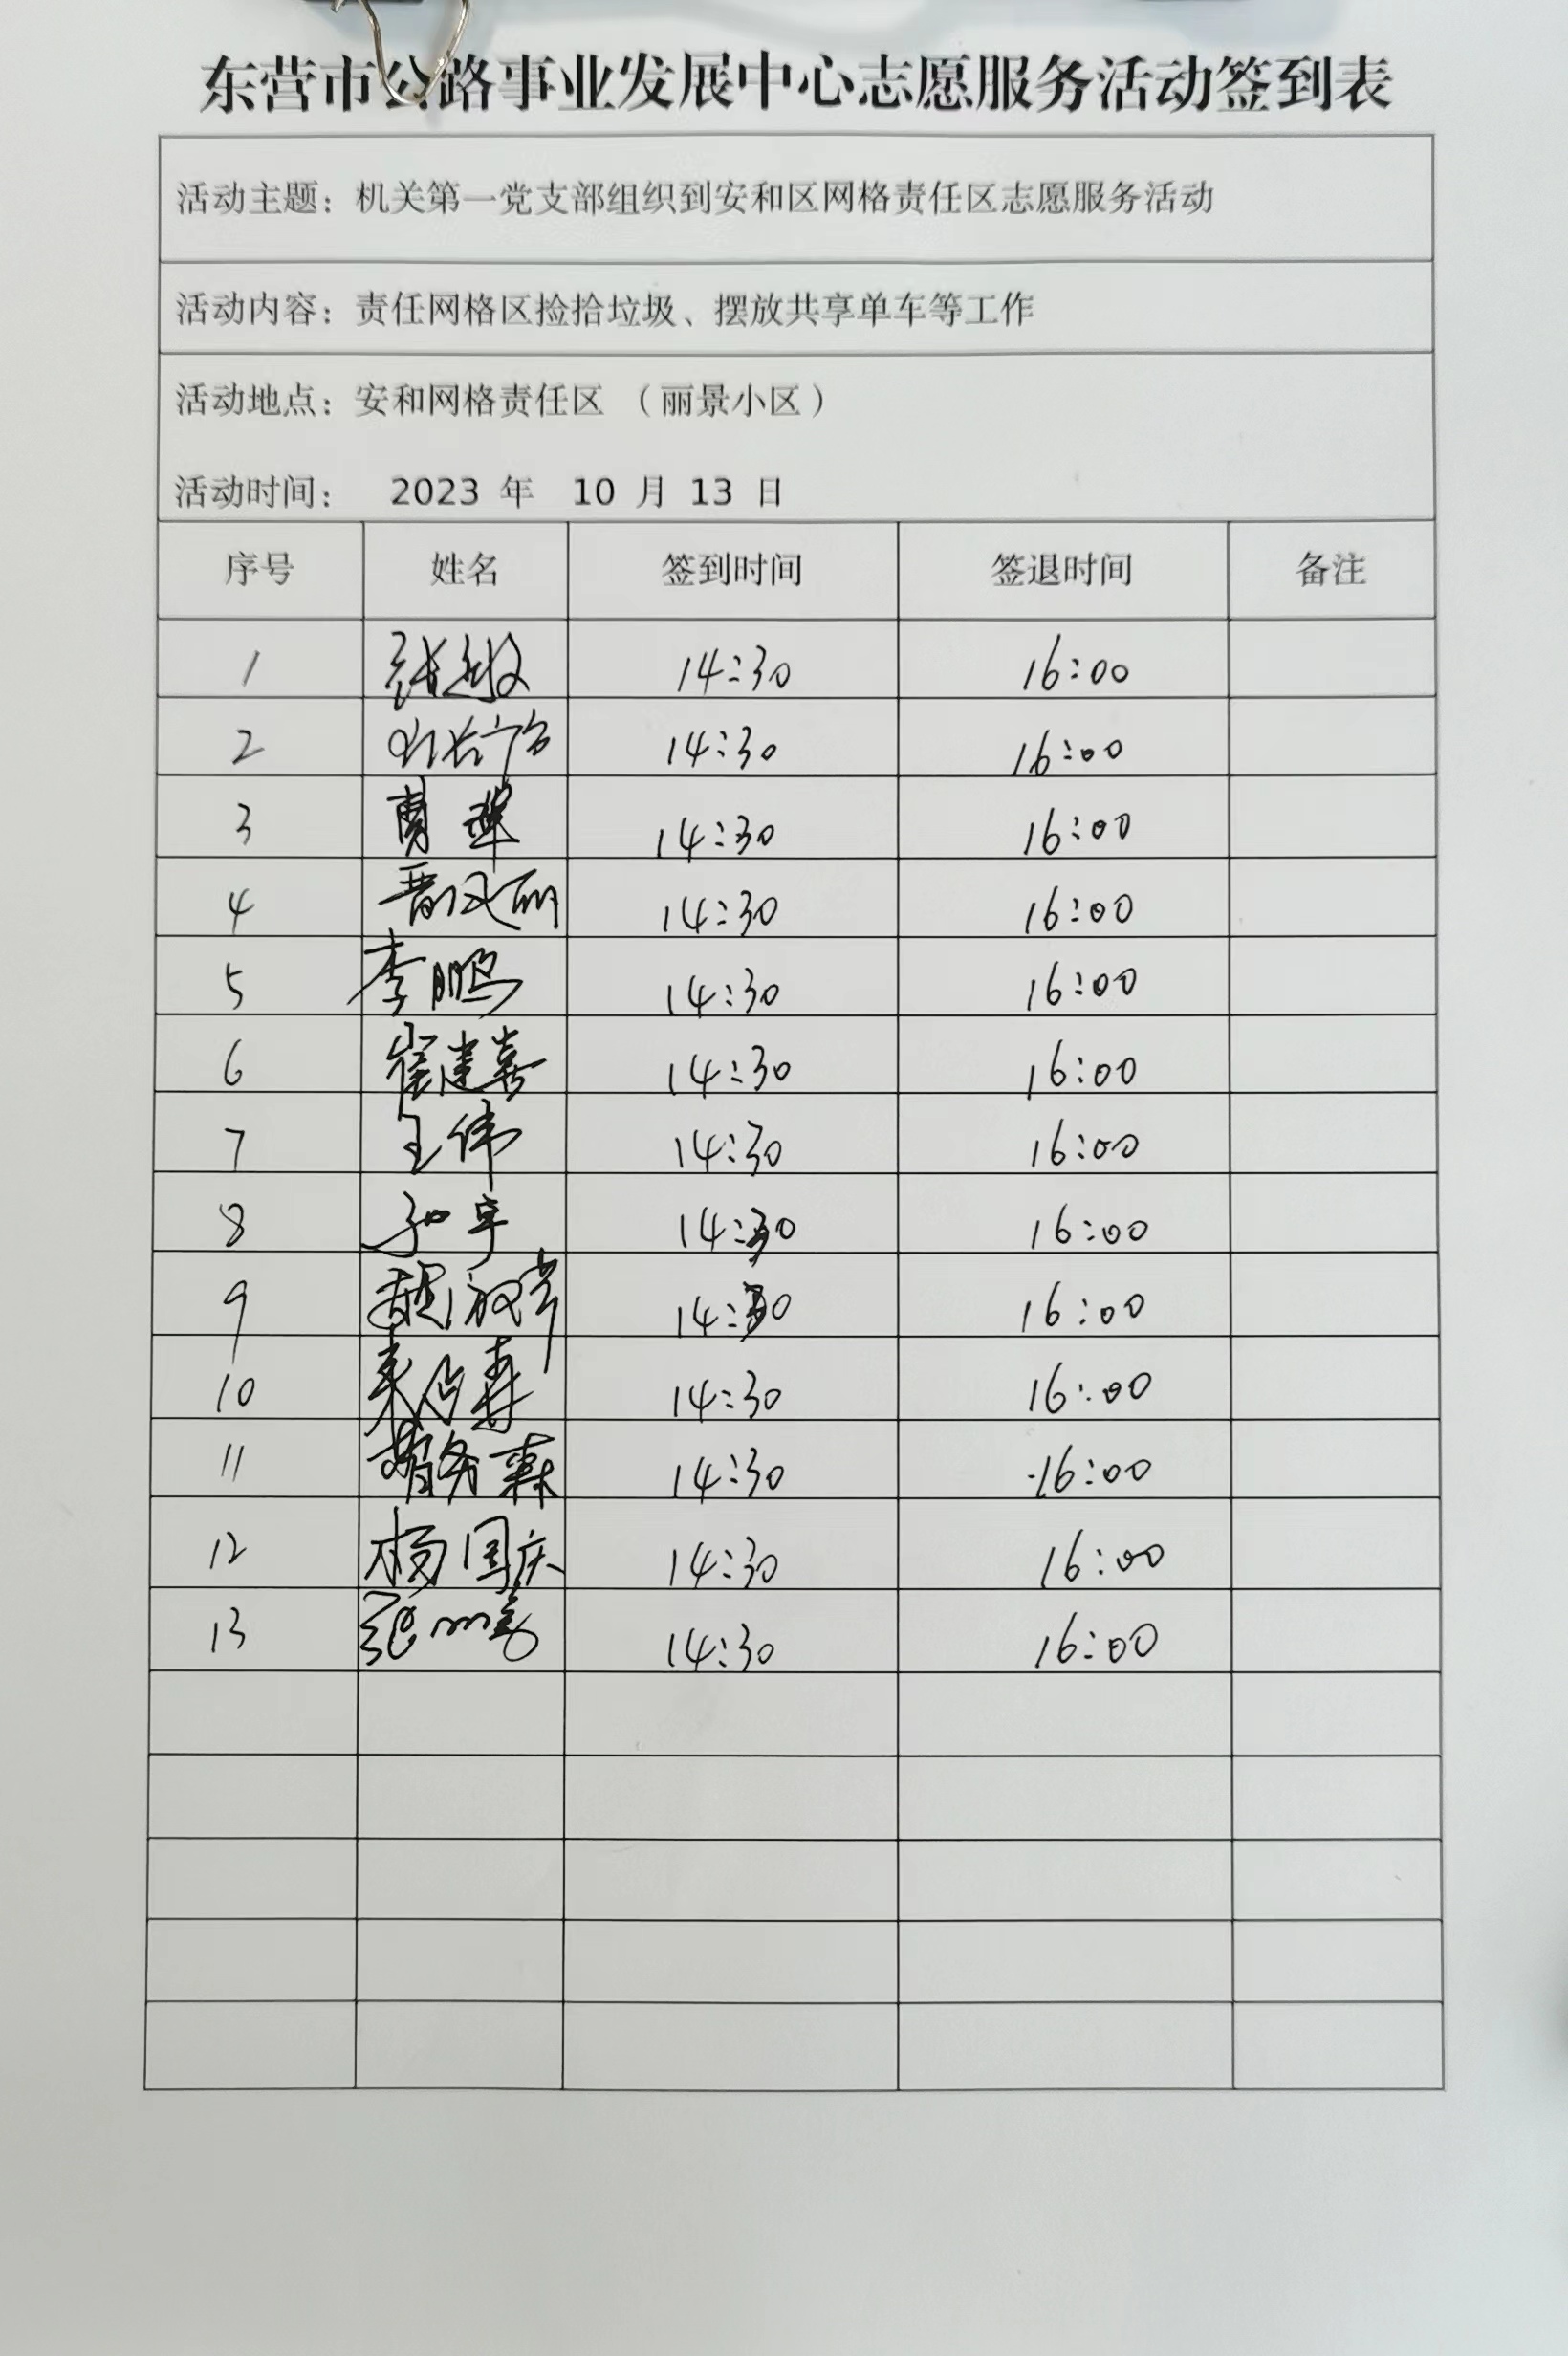 东营市公路事业发展中心志愿服务活动签到表
活动主题：机关第一党支部组织到安和区网格责任区志愿服务活动
活动内容：责任网格区捡拾垃圾、摆放共享单车等工作
活动地点：安和网格责任区 （丽景小区）
活动时间： 2023 年 10 月 13 日
序号 姓名 签到时间 签退时间 备注
1 14:30 16:00
2 14:30 16:00
3 14:30 16:00
4 14:30 16:00
5 李鹏 14:30 16:00
6 崔建喜 14:30 16:00
7 王伟 14:30 16:00
8 14:30 16:00
9 14:30 16:00
10 14:30 16:00
11 14:30 16:00
12 杨国庆 14:30 16:00
13 14:30 16:00